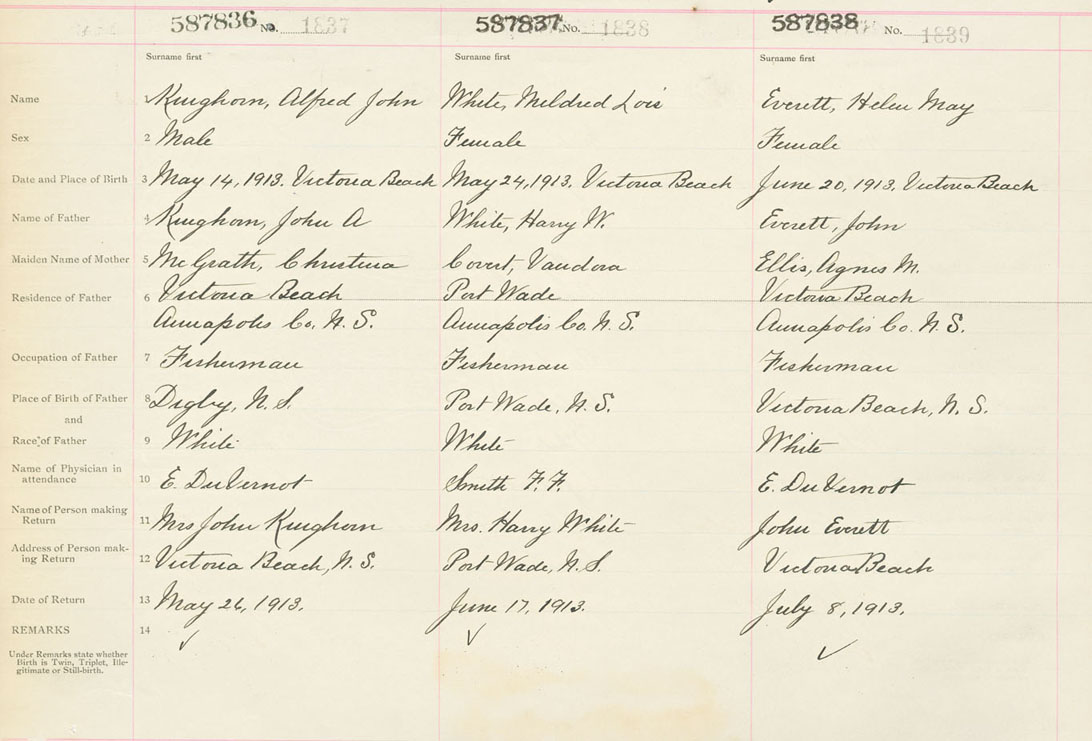 587836 No. 1837 587837 No. 1838 587838 No. 1839
Surname first Surname first Surname first
Name 1 Kinghorn, Alfred John White, Mildred Lois Everett, Helen May
Sex 2 Male Female Female
Date and Place of Birth 3 May 14, 1913. Victoria Beach May 24, 1913. Victoria Beach June 20, 1913. Victoria Beach
Name of Father 4 Kinghorn, John A White, Harry W. Everett, John
Maiden Name of Mother 5 McGrath, Christina Covert, Vandora Ellis, Agnes M.
Residence of Father 6 Victoria Beach Port Wade Victoria Beach
Annapolis Co. N. S. Annapolis Co. N. S. Annapolis Co. N. S.
Occupation of Father 7 Fisherman Fisherman Fisherman
Place of Birth of Father 8 Digby, N. S. Port Wade, N. S. Victoria Beach, N. S.
and
Race of Father 9 White White White
Name of Physician in
attendance 10 E. DuVernot Smith F. F. E. DuVernot
Name of Person making
Return 11 Mrs John Kinghorn Mrs. Harry White John Everett
Address of Person mak-
ing Return 12 Victoria Beach, N. S. Port Wade, N. S. Victoria Beach
Date of Return 13 May 26, 1913. June 17, 1913. July 8, 1913.
REMARKS 14
Under Remarks state whether
Birth is Twin, Triplet, Ille-
gitimate or Still-birth.